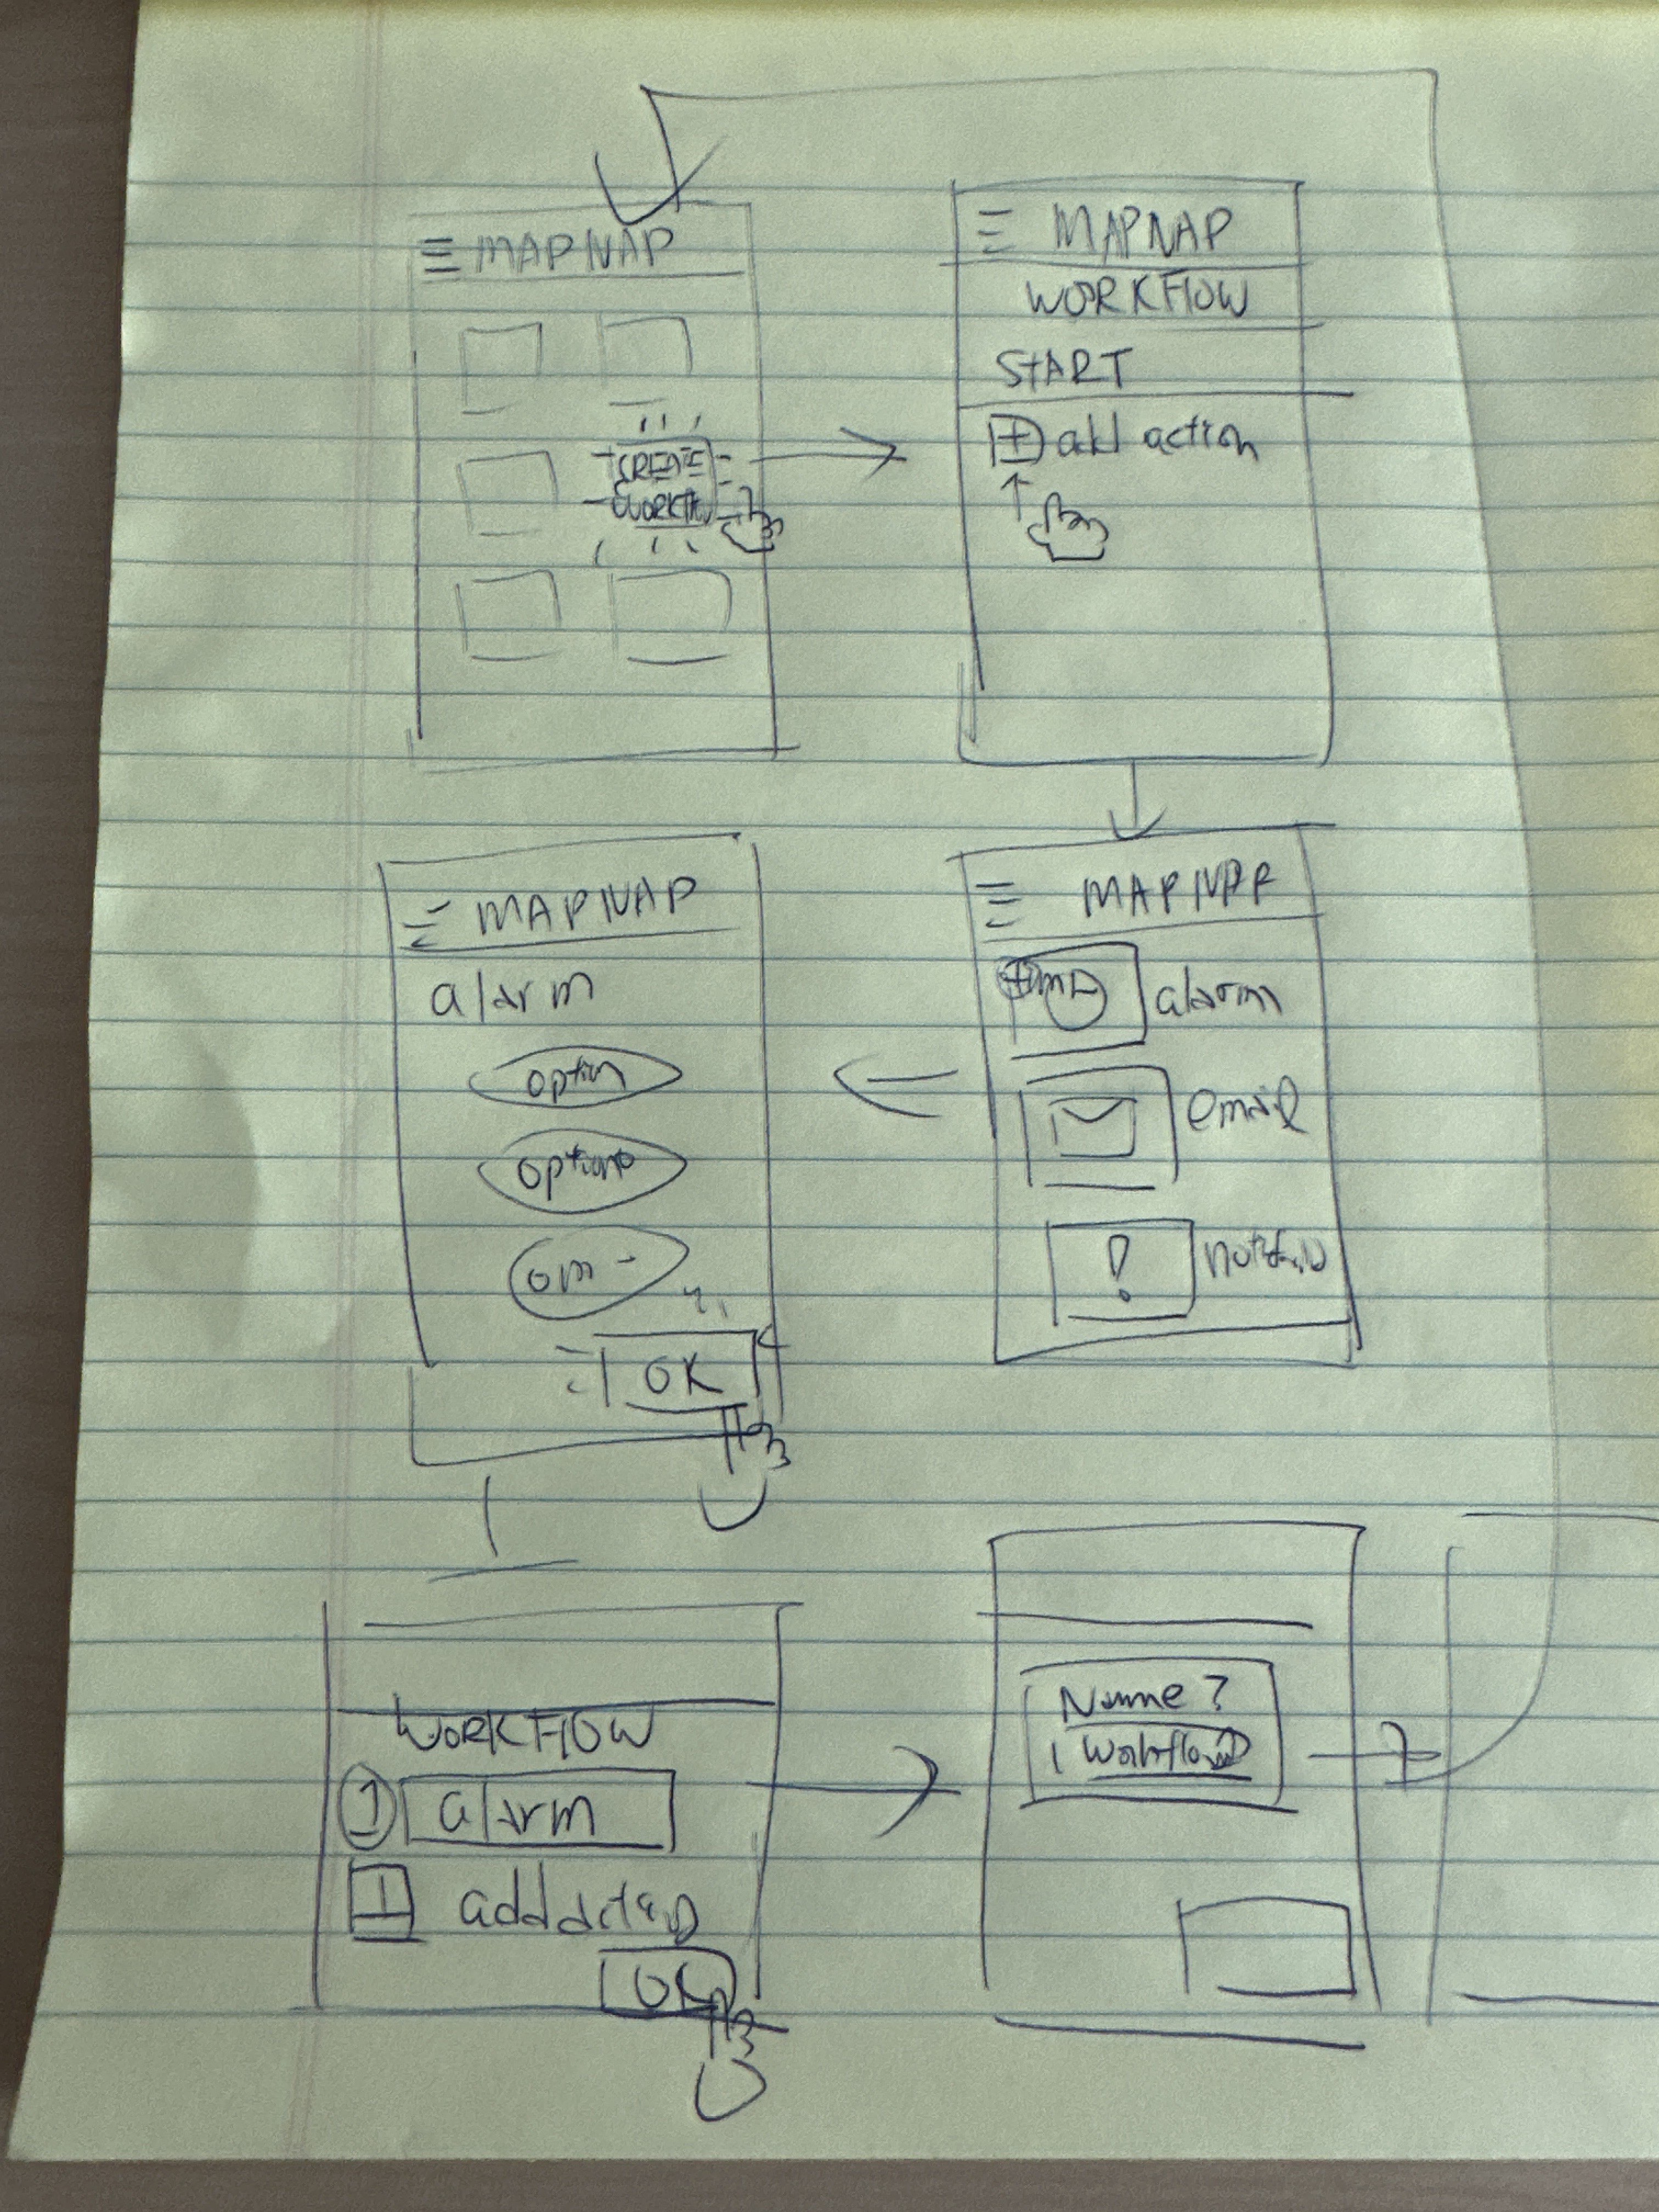 MAPNAP
CREATE
WORKFLW
MAPNAP
WORKFLOW
START
add action
MAPNAP
alarm
email
MAPNAP
alarm
option
option
OK
WORKFLOW
1 alarm
add action
OK
Name?
Workflow